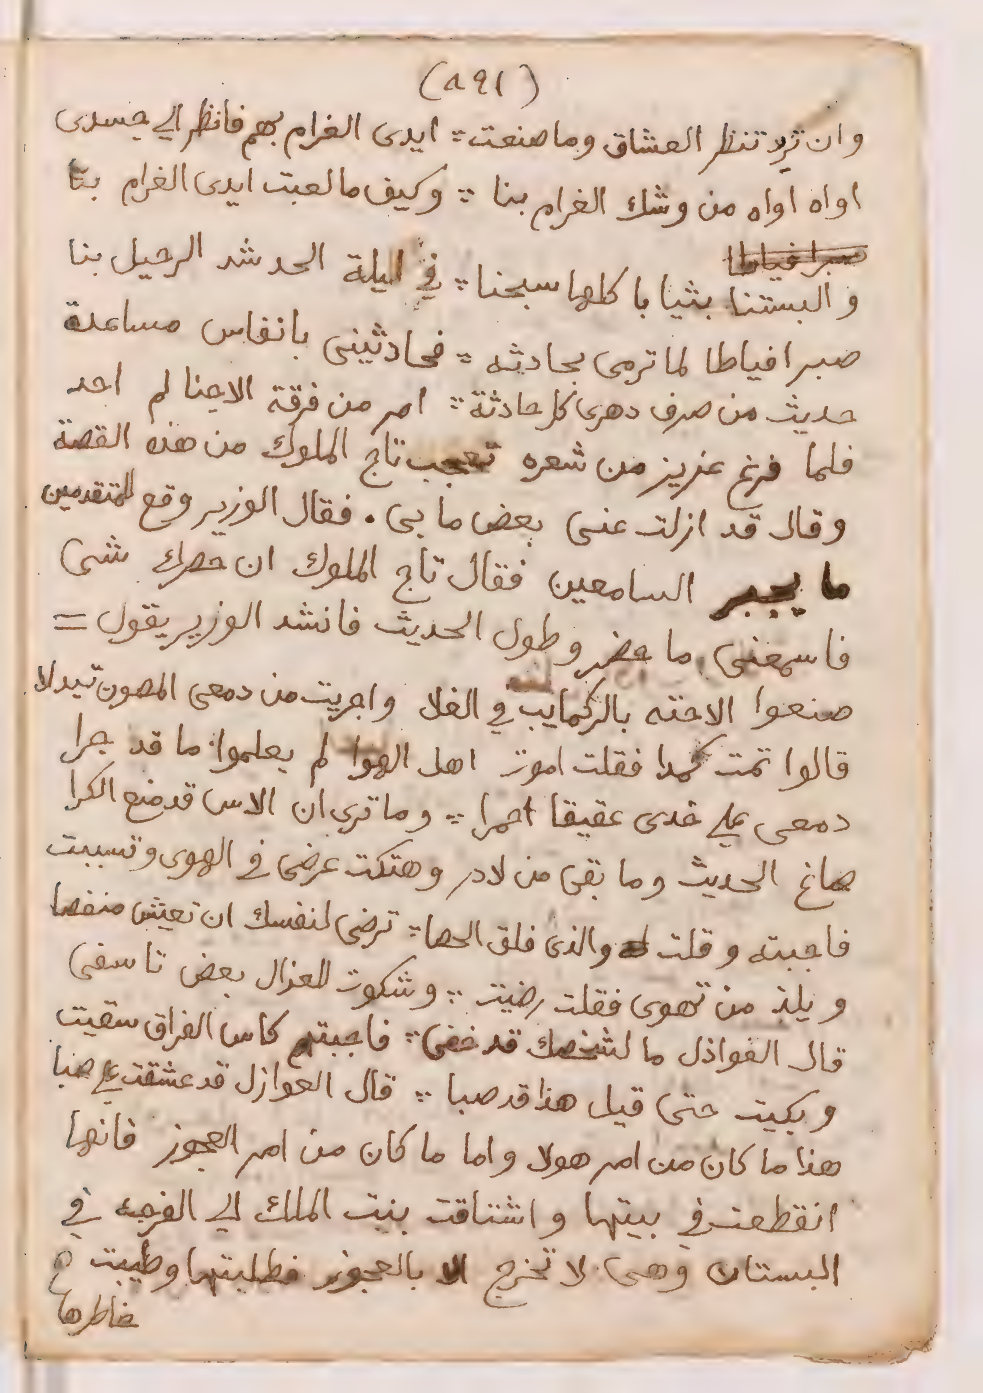 (٨٩١)
وان ترد تنظر العشاق وما صنعت ܀ ايدى الغرام بهم فانظر الي جسدى
اواه اواه من وشك الغرام بنا ܀ وكيف ما لعبت ايدى الغرام بنا
صبرا فياطا
والبستنا بثيابا كلها سبحنا ܀ في ليلة الحد شد الرحيل بنا
صبرا فياطا لما ترمى بحادثه ܀ فحادثينى بانفاس مساعدة
حديث من صرف دهرى كل حادثة ܀ امر من فرقة الاحنا لم احد
فلما فرغ عزيز من شعره تعجب تاج الملوك من هذه القصة
وقال قد ازلت عنى بعض ما بى . فقال الوزير وقع للمتقدمين
ما يجبر السامعين فقال تاج الملوك ان حضرك شى
فاسمعنى ما حضر وطول الحديث فانشد الوزير يقول =
صنعوا الاحته بالركايب في الفلا واجريت من دمعى المصون تبدلا
قالوا تمت كمدا فقلت اموت اهل الهوا لم يعلموا ما قد جرا
دمعى علي خدى عقيقا احمرا ܀ وما ترى ان الاس قد منع الكرا
صاغ الحديث وما بقى من لادر وهتكت عرضى في الهوى وتسببت
فاجبته وقلت له والذى فلق الحصا ܀ ترضى لنفسك ان تعيش منفصا
ويلذ من تهوى فقلت رضيت ܀ وشكوت للعزال بعض تاسفى
قال العواذل ما لشخصك قد خفى ܀ فاجبتهم كاس الفراق سقيت
وبكيت حتى قيل هذا قد صبا ܀ قال العوازل قد عشقت علي صبا
هذا ما كان من امر هولا واما ما كان من امر العجوز فانها
انقطعت في بيتها واشتاقت بنت الملك الي الفرجه في
البستان وهى لا تخرج الا بالعجوز فطلبتها وطيبت
خاطرها